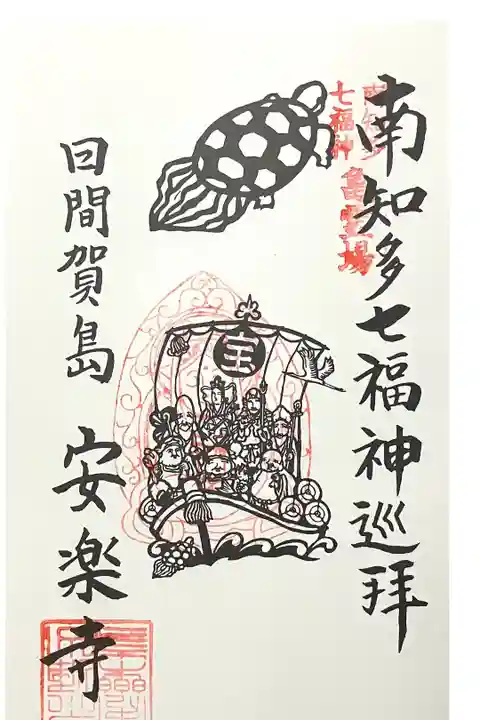 南知多七福神巡拝
南知多
七福神
霊場
宝
日間賀島 安楽寺